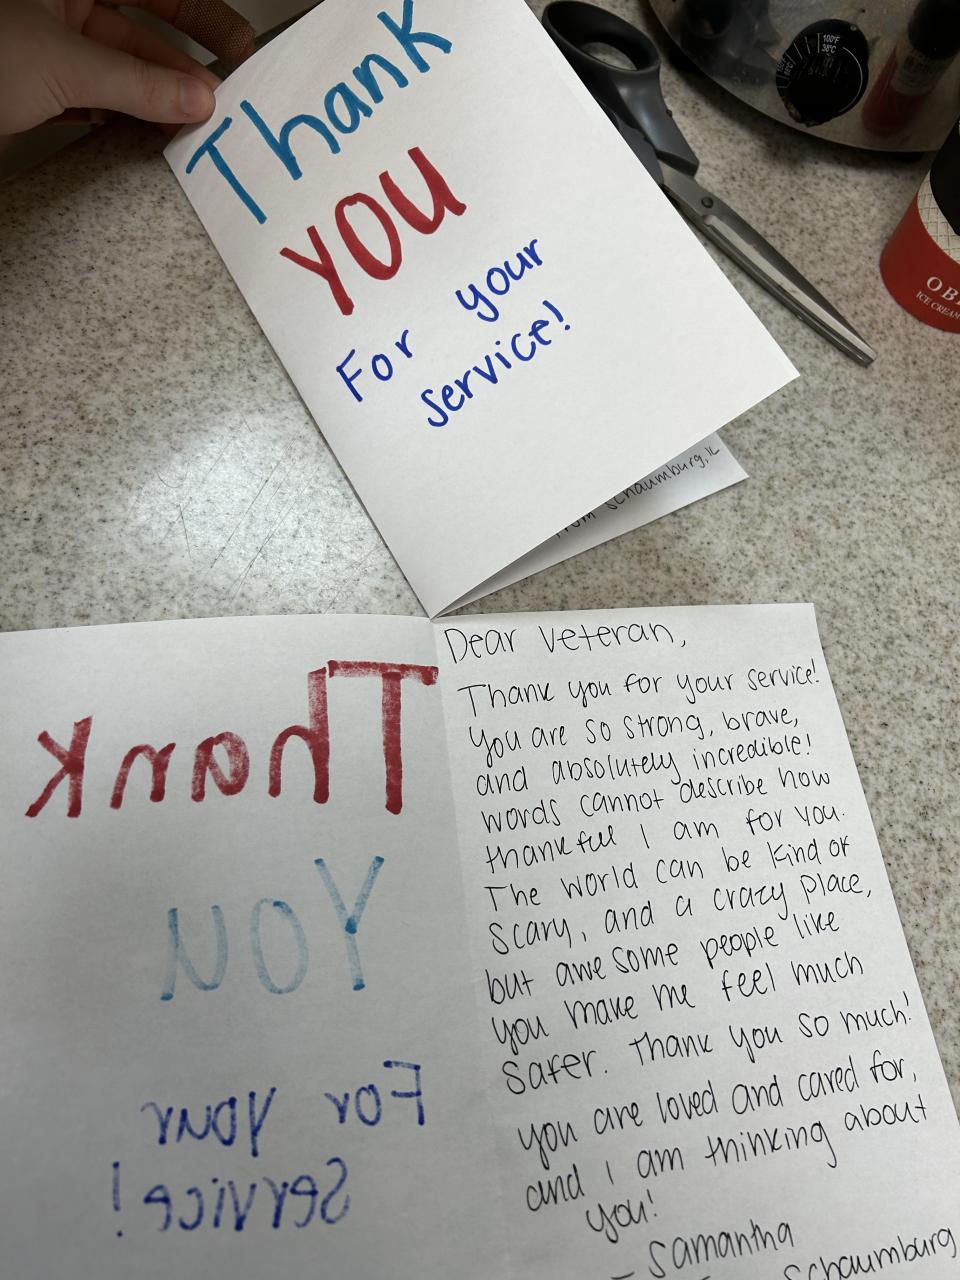 Thank
YOU
For your
service!
from Schaumburg, IL
100°F
38°C
ICE CREAM
Dear veteran,
Thank you for your service!
you are so strong, brave,
and absolutely incredible!
words cannot describe how
thankful I am for you.
The world can be kind of
scary, and a crazy place,
but awesome people like
you make me feel much
safer. Thank you so much!
you are loved and cared for,
and I am thinking about
you!
- Samantha
Schaumburg
Thank
You
For your
Service!